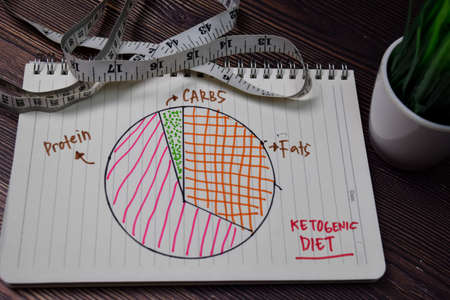 CARBS
Protein
Fats
KETOGENIC
DIET